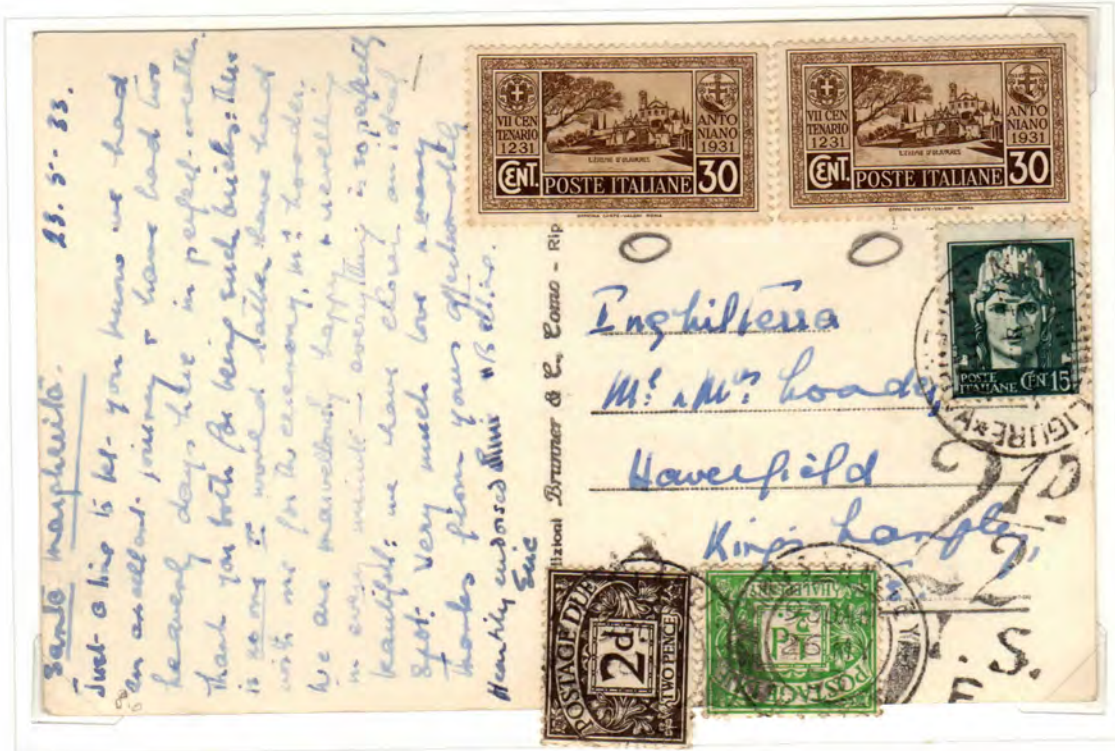 Santa Margherita. 23.5.33.
Just a line to let you know we had
an excellent journey & have had two
heavenly days here in perfect weather.
Thank you both for being such bricks: there
is no one I would rather have had
with me for the ceremony, Mr. Loader.
We are marvellously happy & revelling
in every minute – everything is so perfectly
beautiful: we have chosen an ideal
spot. Very much love & many
thanks from yours affectionately
"Bettine.
Heartily endorsed
Eric
VII CENTENARIO 1231
ANTONIANO 1931
CENT. POSTE ITALIANE 30
OFFICINA CARTE-VALORI ROMA
VII CENTENARIO 1231
ANTONIANO 1931
CENT. POSTE ITALIANE 30
OFFICINA CARTE-VALORI ROMA
POSTE ITALIANE CENT 15
LIGURE
dizioni Brunner & C. Como - Rip
Inghilterra
Mr. & Mrs. Loader,
Haverfield
Kings Langley,
2½D.
POSTAGE DUE
2d
TWO PENCE
POSTAGE DUE
½d
HALFPENNY